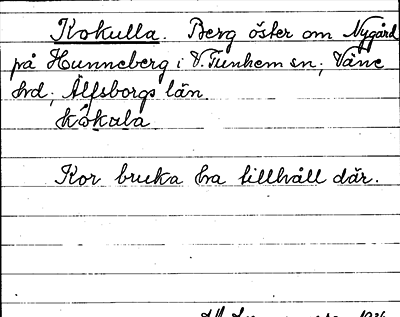 Kokulla. Berg öster om Nygård
på Hunneberg i V. Tunhem sn, Väne
hd, Älfsborgs län.
kokula
Kor bruka ha tillhåll där.